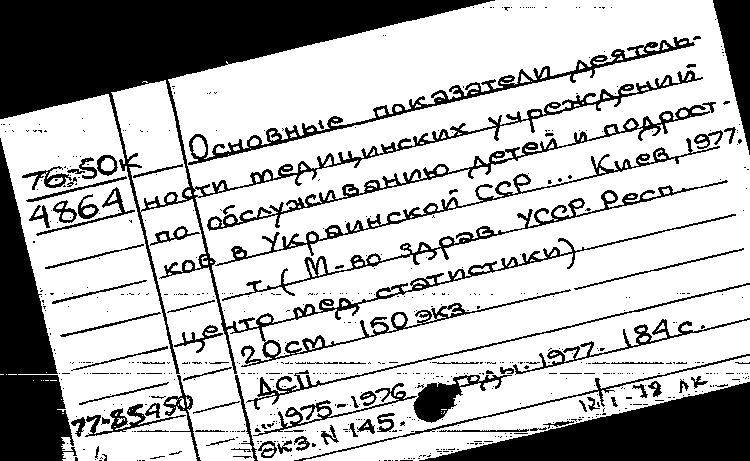 Основные показатели деятель-
76-50к
4864
ности медицинских учреждений
по обслуживанию детей и подрост-
ков в Украинской ССР ... Киев, 1977.
т. (М-во здрав. УССР. Респ.
центр мед. статистики).
20см. 150 экз.
ДСП.
77-85450
... 1975-1976 годы. 1977. 184 с.
Экз. N 145.
12/I-78 ЛК